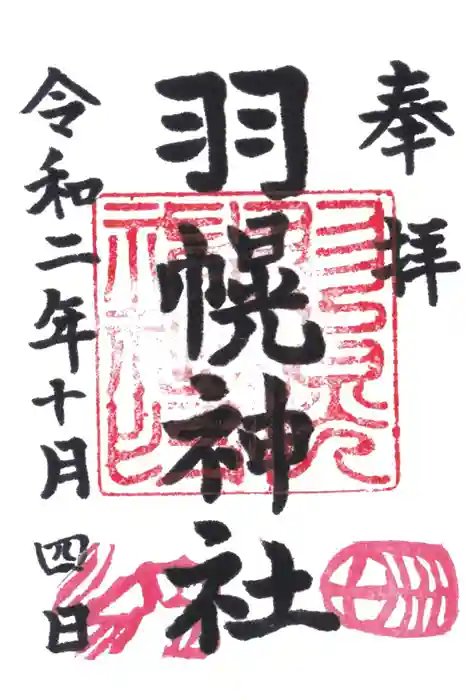 奉拝
羽幌神社
令和二年十月四日